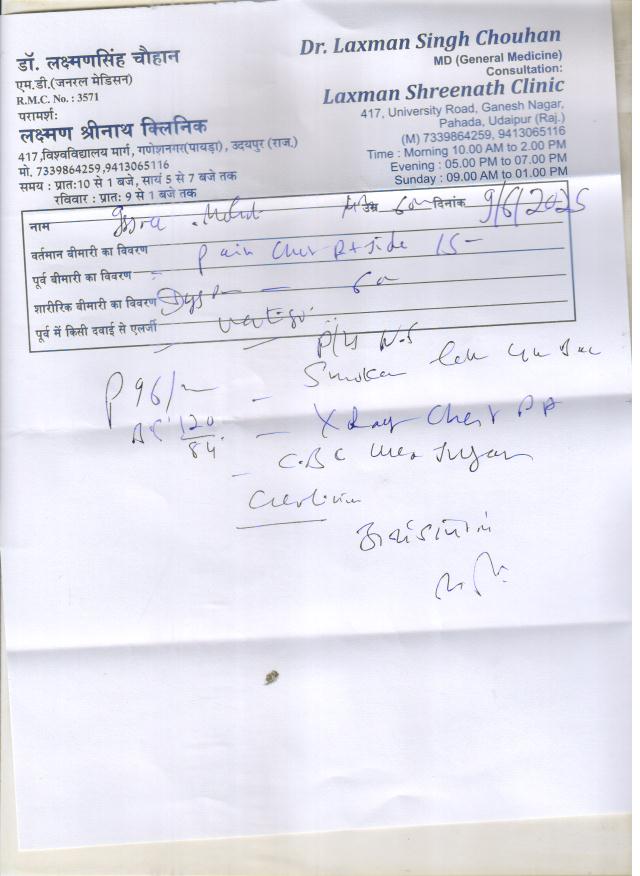 डॉ. लक्ष्मणसिंह चौहान
एम.डी.(जनरल मेडिसन)
R.M.C. No. : 3571
परामर्श:
लक्ष्मण श्रीनाथ क्लिनिक
417,विश्वविद्यालय मार्ग, गणेशनगर(पायड़ा) , उदयपुर (राज.)
मो. 7339864259,9413065116
समय : प्रात:10 से 1 बजे, सायं 5 से 7 बजे तक
रविवार : प्रात: 9 से 1 बजे तक
Dr. Laxman Singh Chouhan
MD (General Medicine)
Consultation:
Laxman Shreenath Clinic
417, University Road, Ganesh Nagar,
Pahada, Udaipur (Raj.)
(M) 7339864259, 9413065116
Time : Morning 10.00 AM to 2.00 PM
Evening : 05.00 PM to 07.00 PM
Sunday : 09.00 AM to 01.00 PM
नाम Mohd उम्र 60 दिनांक 9/6/2025
वर्तमान बीमारी का विवरण Pain Chest Rt side 15
पूर्व बीमारी का विवरण
शारीरिक बीमारी का विवरण
पूर्व में किसी दवाई से एलर्जी vertigo
P 96/
Smoker
120
84
X Ray Chest PA
CBC Urea Sugar
Creatinine